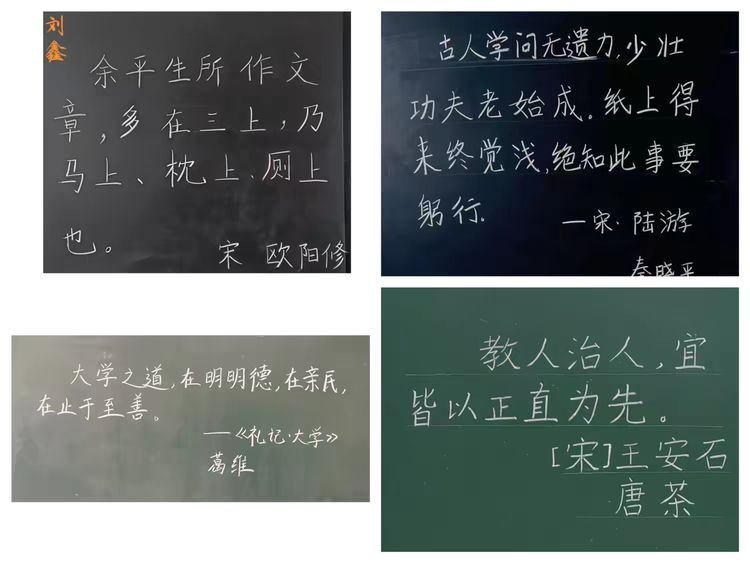 刘鑫
余平生所作文
章，多在三上，乃
马上、枕上、厕上
也。
宋 欧阳修
古人学问无遗力，少壮
功夫老始成。纸上得
来终觉浅，绝知此事要
躬行.
—宋·陆游
秦晓平
大学之道，在明明德，在亲民，
在止于至善。
——《礼记·大学》
葛维
教人治人，宜
皆以正直为先。
[宋]王安石
唐茶